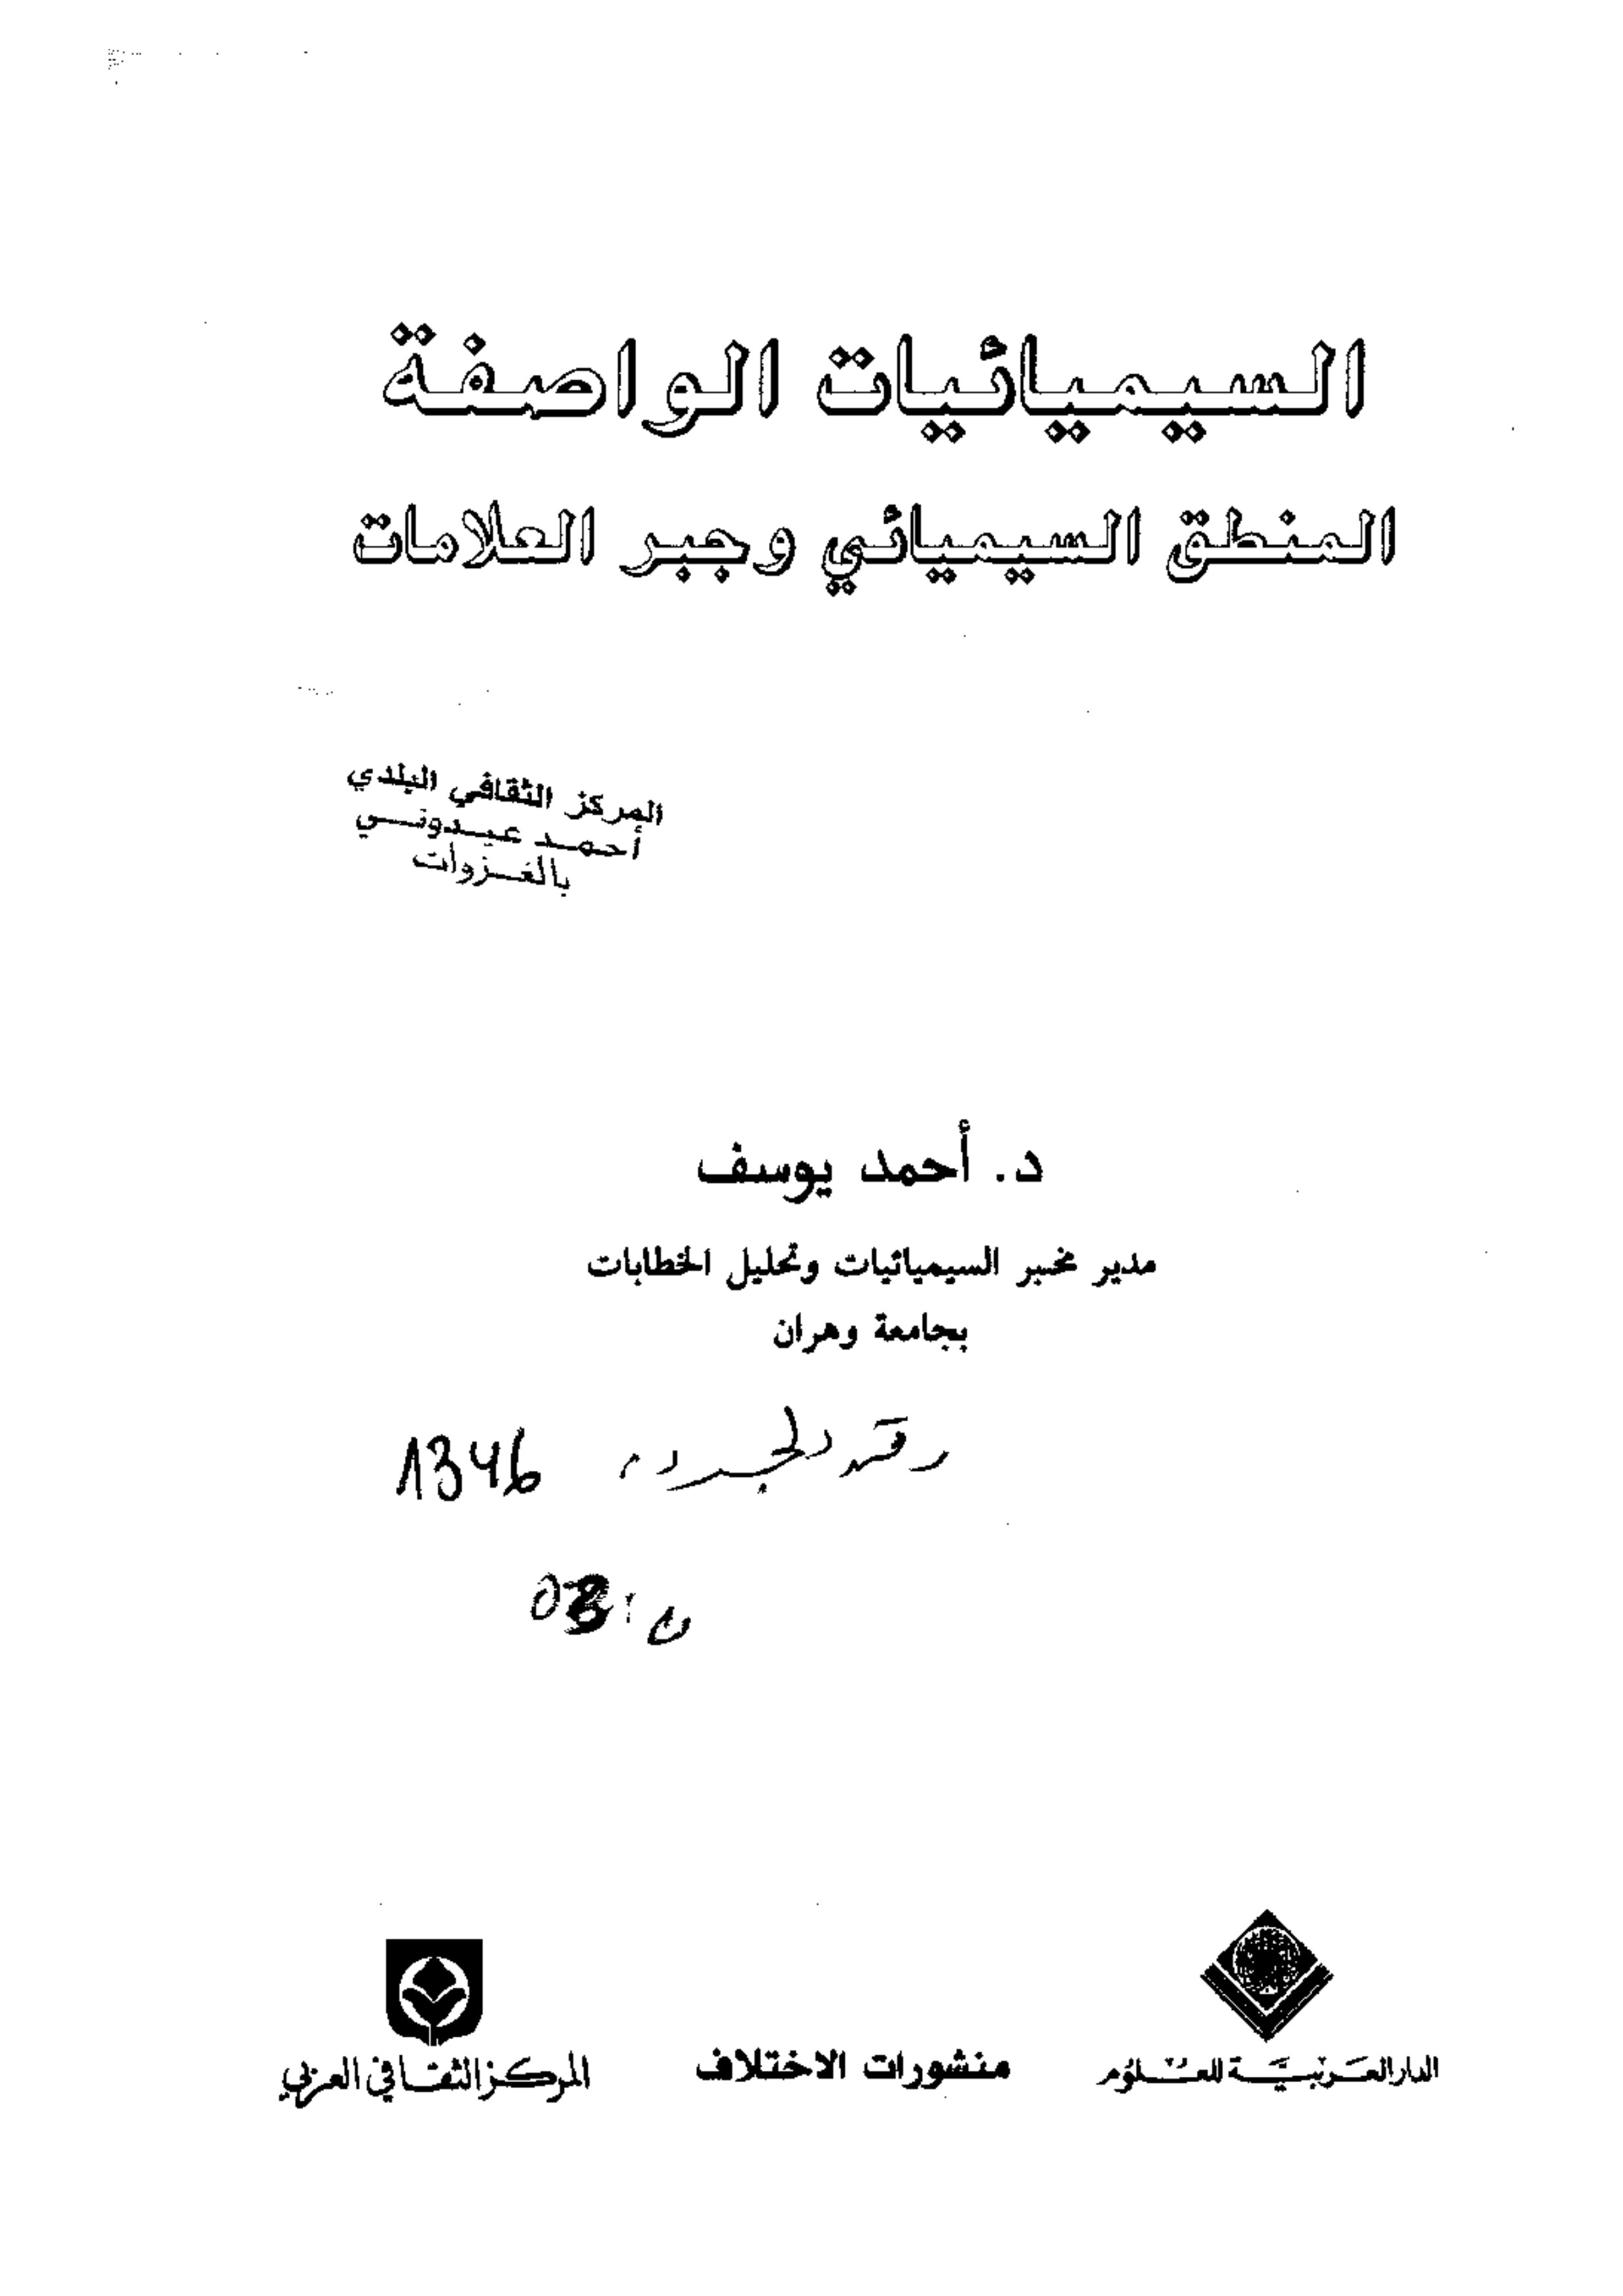 السيميائيات الواصفة
المنطق السيميائي وجبر العلامات
المركز الثقافي البلدي
أحمد عيدوني
بالغزوات
د. أحمد يوسف
مدير مخبر السيميائيات وتحليل الخطابات
بجامعة وهران
رقم الجرد: 1346
03
الدار العربية للعلوم
منشورات الاختلاف
المركز الثقافي العربي